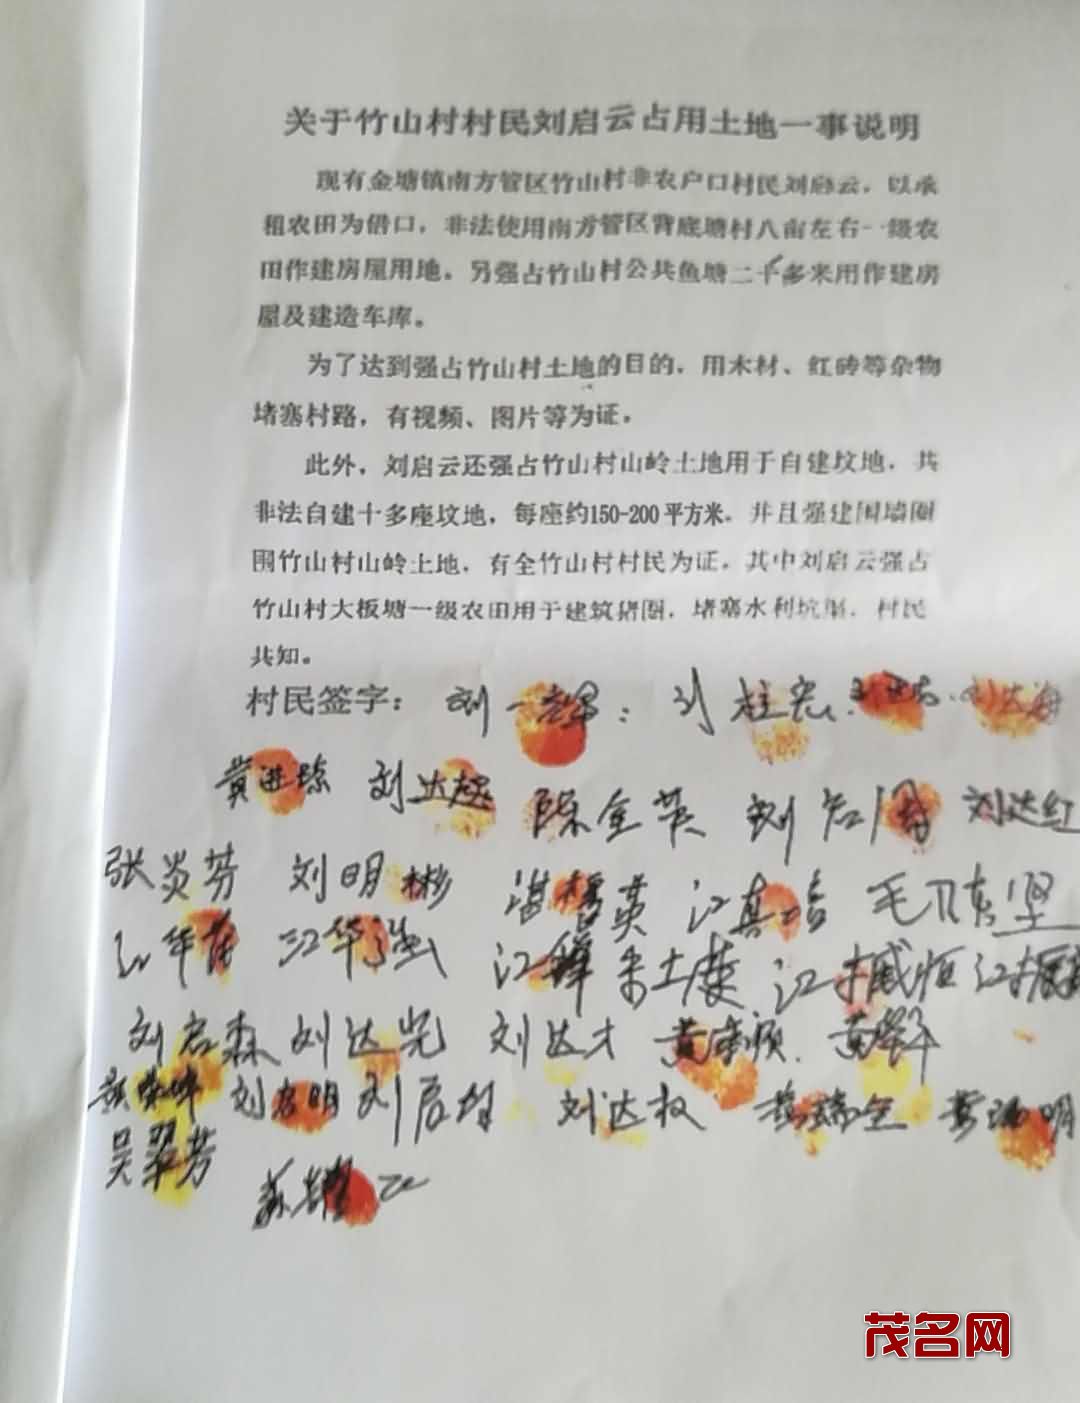 关于竹山村村民刘启云占用土地一事说明
现有金塘镇南方管区竹山村非农户口村民刘启云，以承
租农田为借口，非法使用南方管区背底塘村八亩左右一级农
田作建房屋用地。另强占竹山村公共鱼塘二千多米用作建房
屋及建造车库。
为了达到强占竹山村土地的目的，用木材、红砖等杂物
堵塞村路，有视频、图片等为证。
此外，刘启云还强占竹山村山岭土地用于自建坟地，共
非法自建十多座坟地，每座约150-200平方米。并且强建围墙圈
围竹山村山岭土地，有全竹山村村民为证，其中刘启云强占
竹山村大板塘一级农田用于建筑猪圈，堵塞水利坑，村民
共知。
村民签字： 刘 刘柱宏 刘达海
黄进琼 刘达超 陈金英 刘达红
张炎芬 刘明彬 英 江真 毛
江华 江华强 江 江振恒 江振
刘启森 刘达光 刘达才 黄 黄
刘启明 刘 刘达权 黄瑞全 黄 明
吴翠芳 苏
茂名网